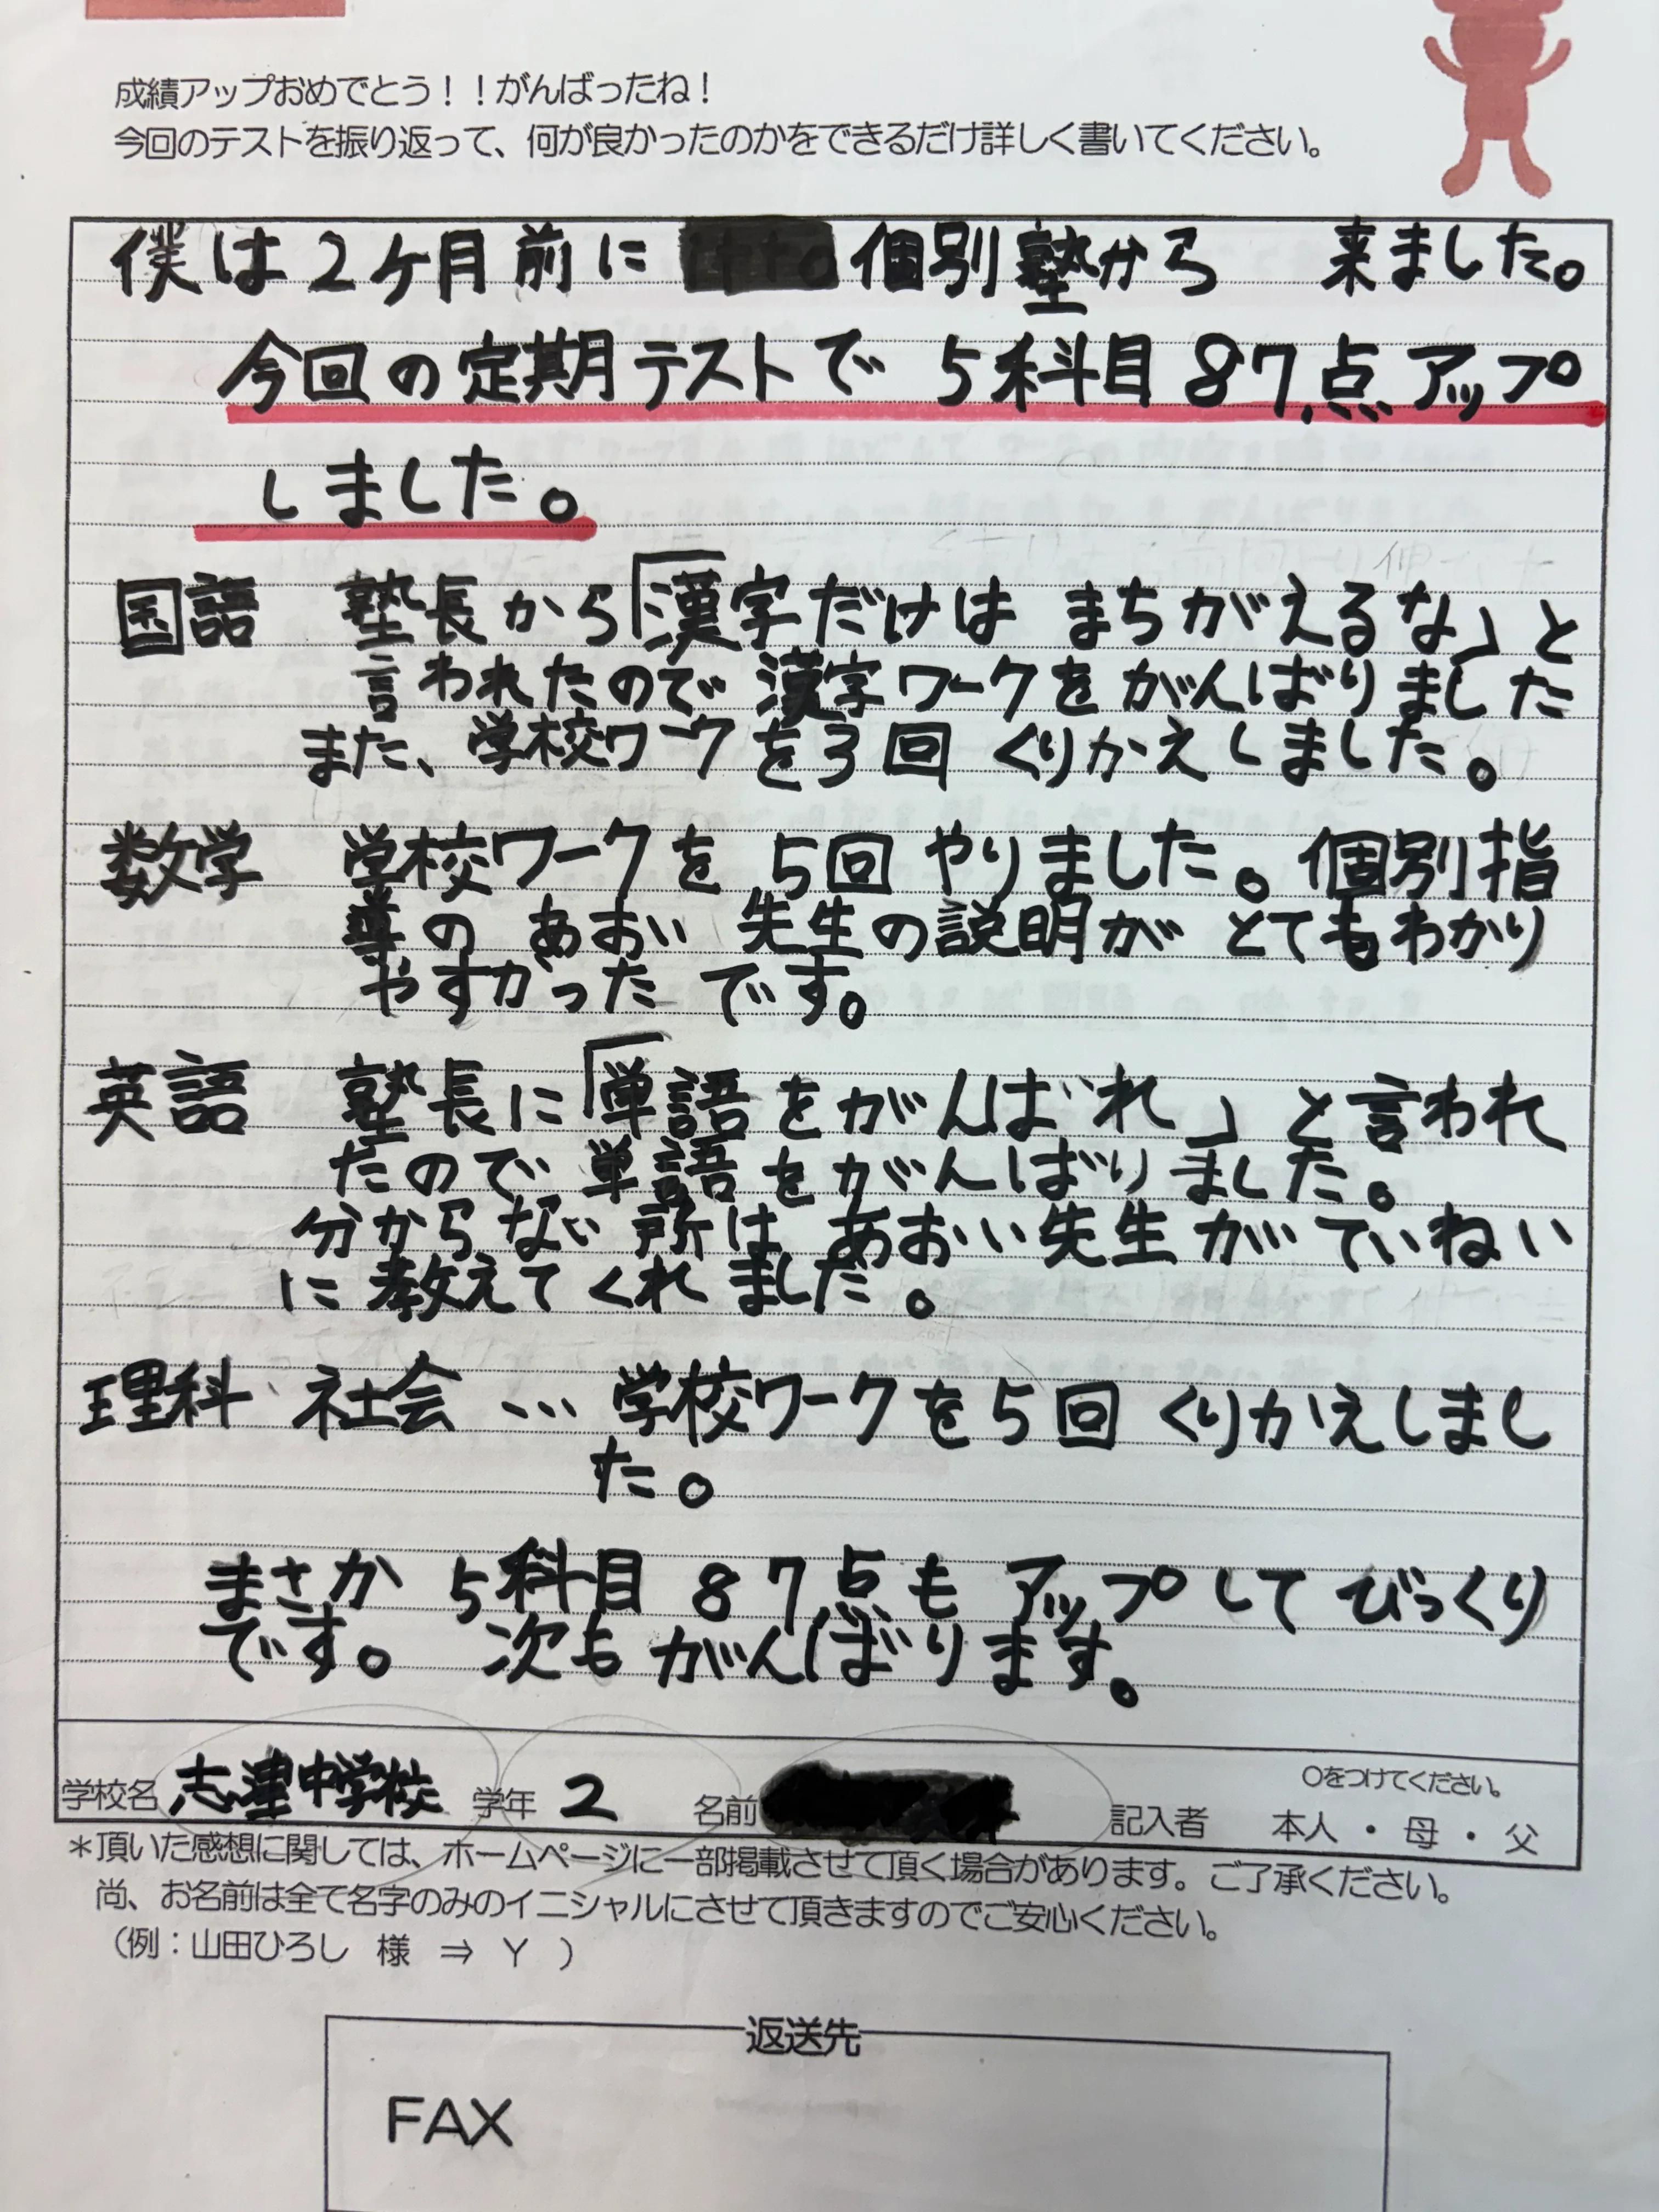 成績アップおめでとう！！がんばったね！
今回のテストを振り返って、何が良かったのかをできるだけ詳しく書いてください。
僕は2ヶ月前に 個別塾から 来ました。
今回の定期テストで 5科目 87点アップ
しました。
国語 塾長から「漢字だけは まちがえるな」と
言われたので 漢字ワークを がんばりました
また、学校ワークを3回 くりかえしました。
数学 学校ワークを 5回 やりました。個別指
導の あおい 先生の説明が とてもわかり
やすかった です。
英語 塾長に「単語をがんばれ」と言われ
たので 単語をがんばりました。
分からない所は あおい先生が ていねい
に 教えてくれました。
理科、社会 … 学校ワークを5回 くりかえしまし
た。
まさか 5科目 87点も アップして びっくり
です。 次も がんばります。
学校名 志津中学校 学年 2 名前 記入者 ○をつけてください。 本人・母・父
＊頂いた感想に関しては、ホームページに一部掲載させて頂く場合があります。ご了承ください。
尚、お名前は全て名字のみのイニシャルにさせて頂きますのでご安心ください。
（例：山田ひろし 様 ⇒ Y ）
返送先
FAX